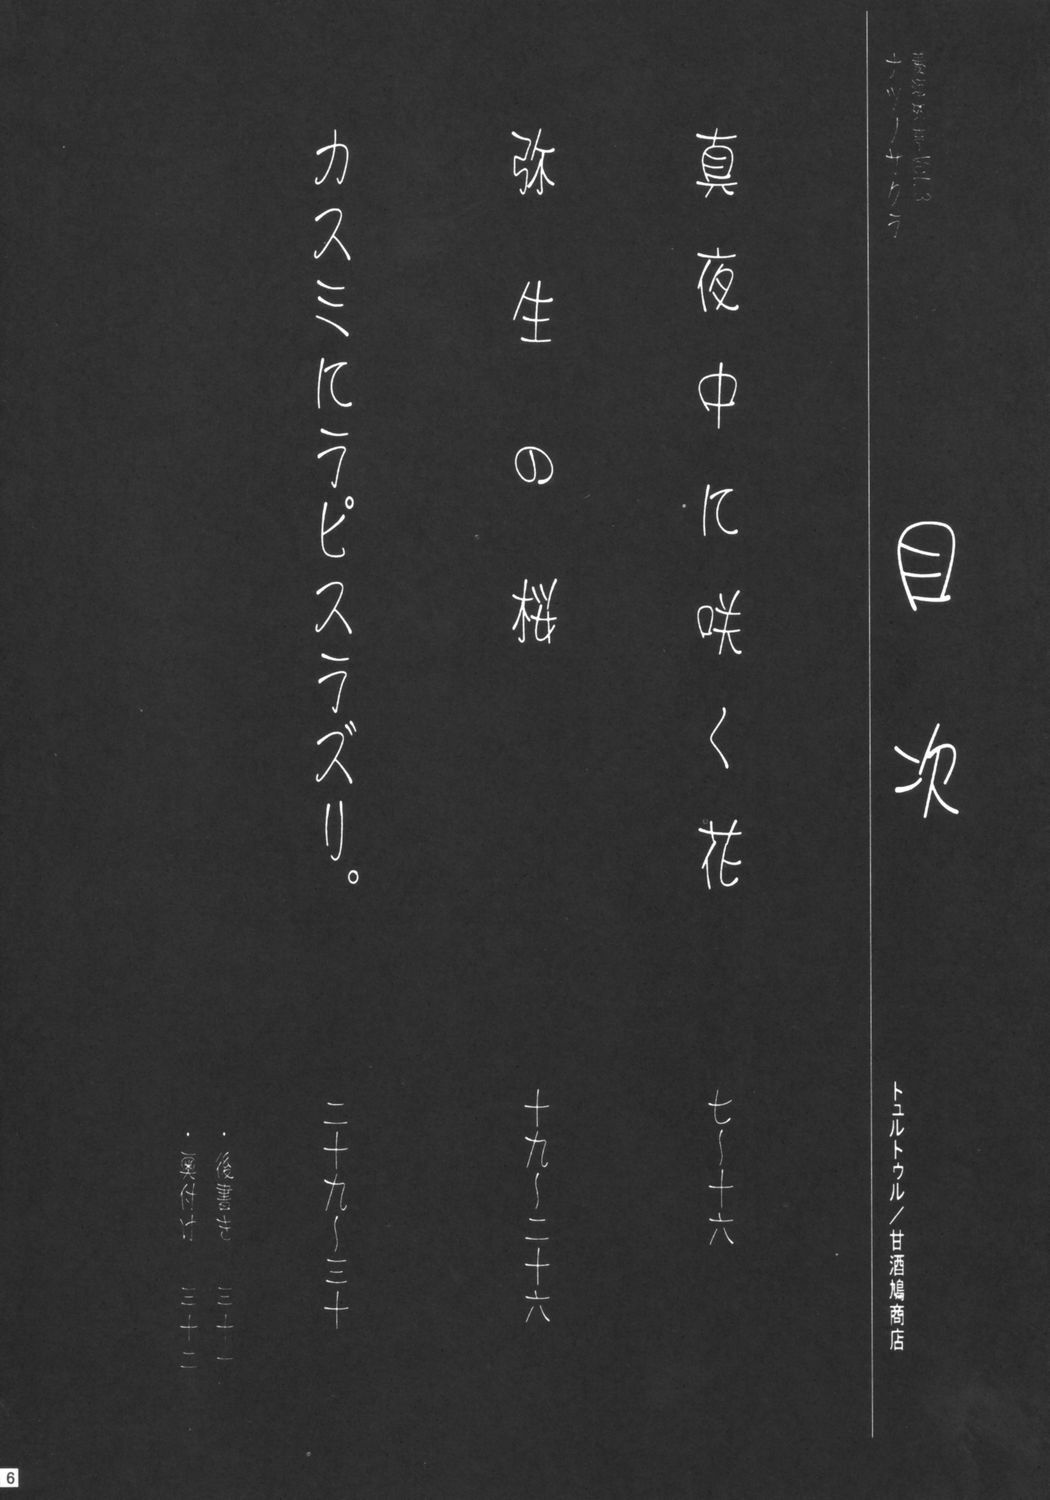 Vol.3
ナツノサクラ
目次
トュルトゥル／甘酒鳩商店
真夜中に咲く花
七〜十六
弥生の桜
十九〜二十六
カスミにラピスラズリ。
二十九〜三十
・後書き 三十一
・奥付け 三十二
6